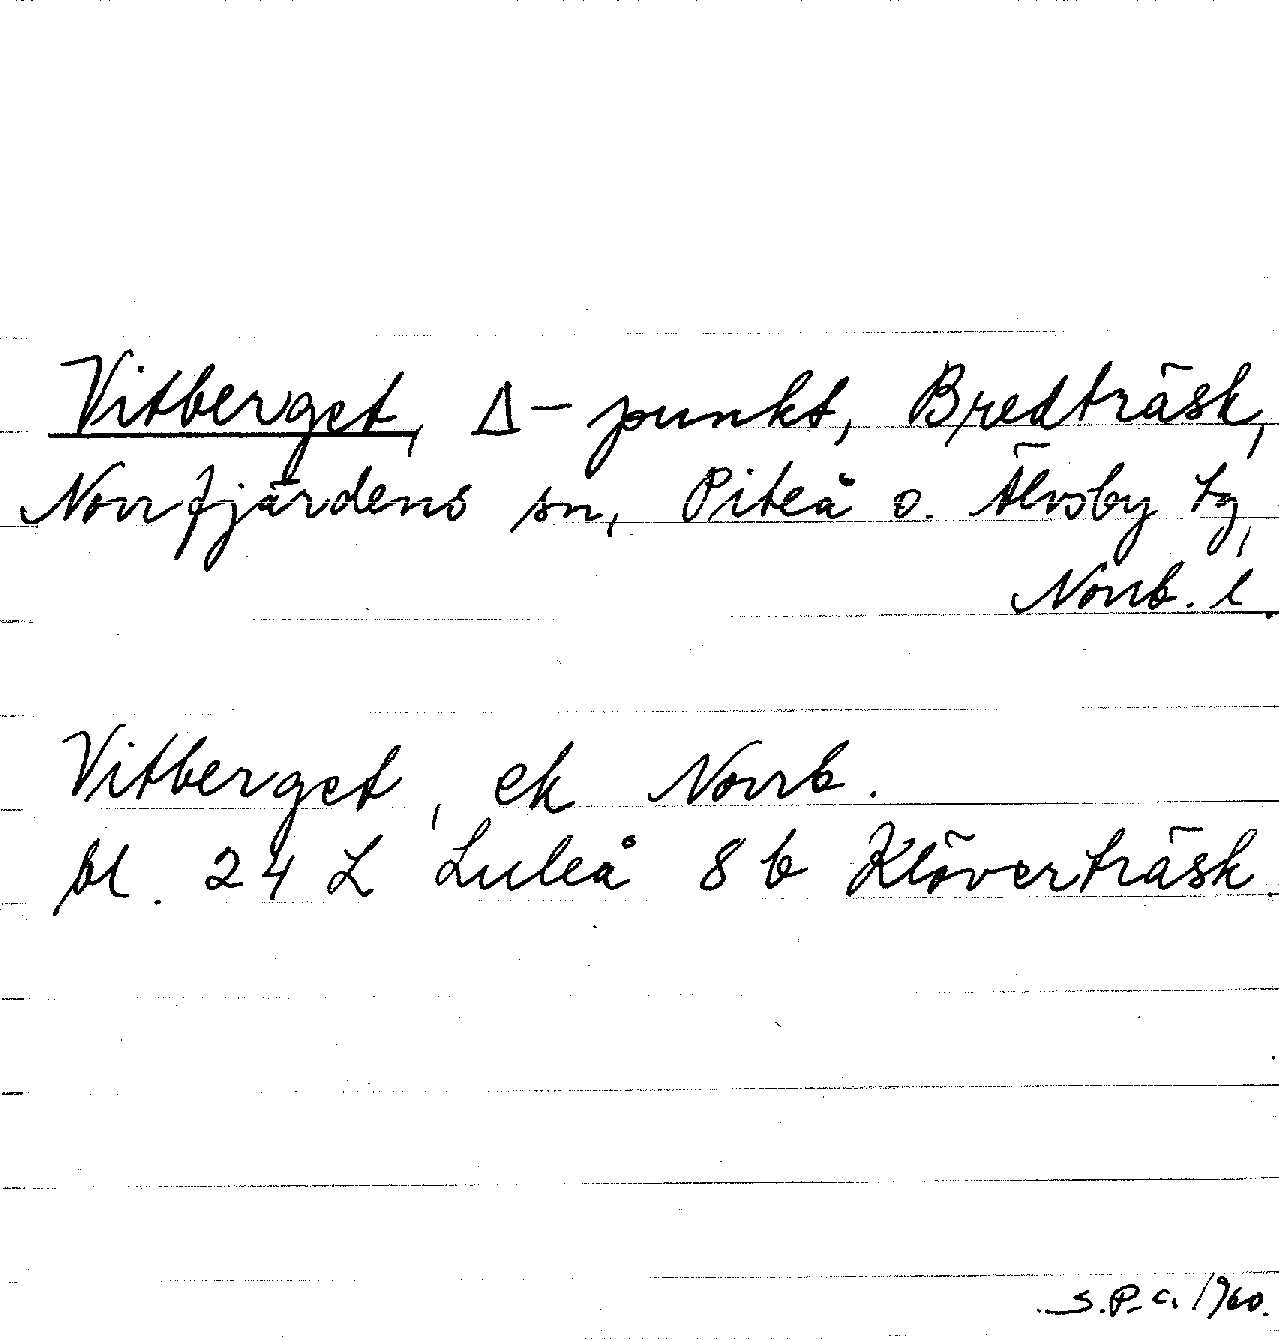 Vitberget, Δ-punkt, Bredträsk,
Norrfjärdens sn, Piteå o. Älvsby tg,
Norrb. l.
Vitberget, ek Norrb.
bl. 24 L Luleå 8 b Klöverträsk.
S.P.C. 1960.